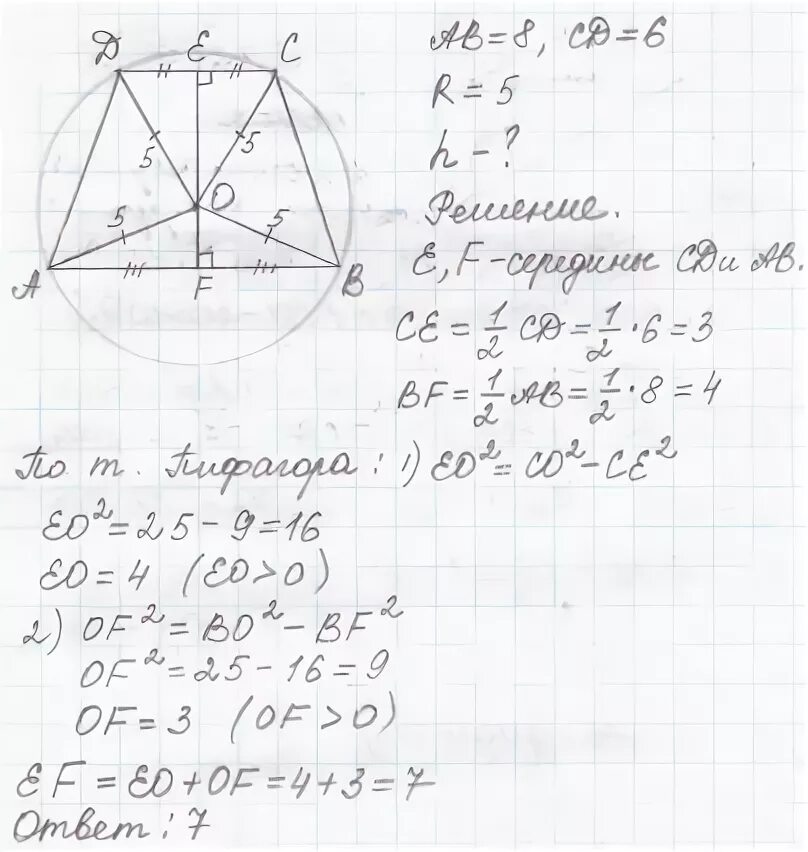 D E C
5 5
O
5 5
A F B
AB = 8, CD = 6
R = 5
h - ?
Решение.
E, F - середины CD и AB.
CE = 1/2 CD = 1/2 · 6 = 3
BF = 1/2 AB = 1/2 · 8 = 4
По т. Пифагора: 1) EO² = CO² - CE²
EO² = 25 - 9 = 16
EO = 4 (EO > 0)
2) OF² = BO² - BF²
OF² = 25 - 16 = 9
OF = 3 (OF > 0)
EF = EO + OF = 4 + 3 = 7
Ответ: 7